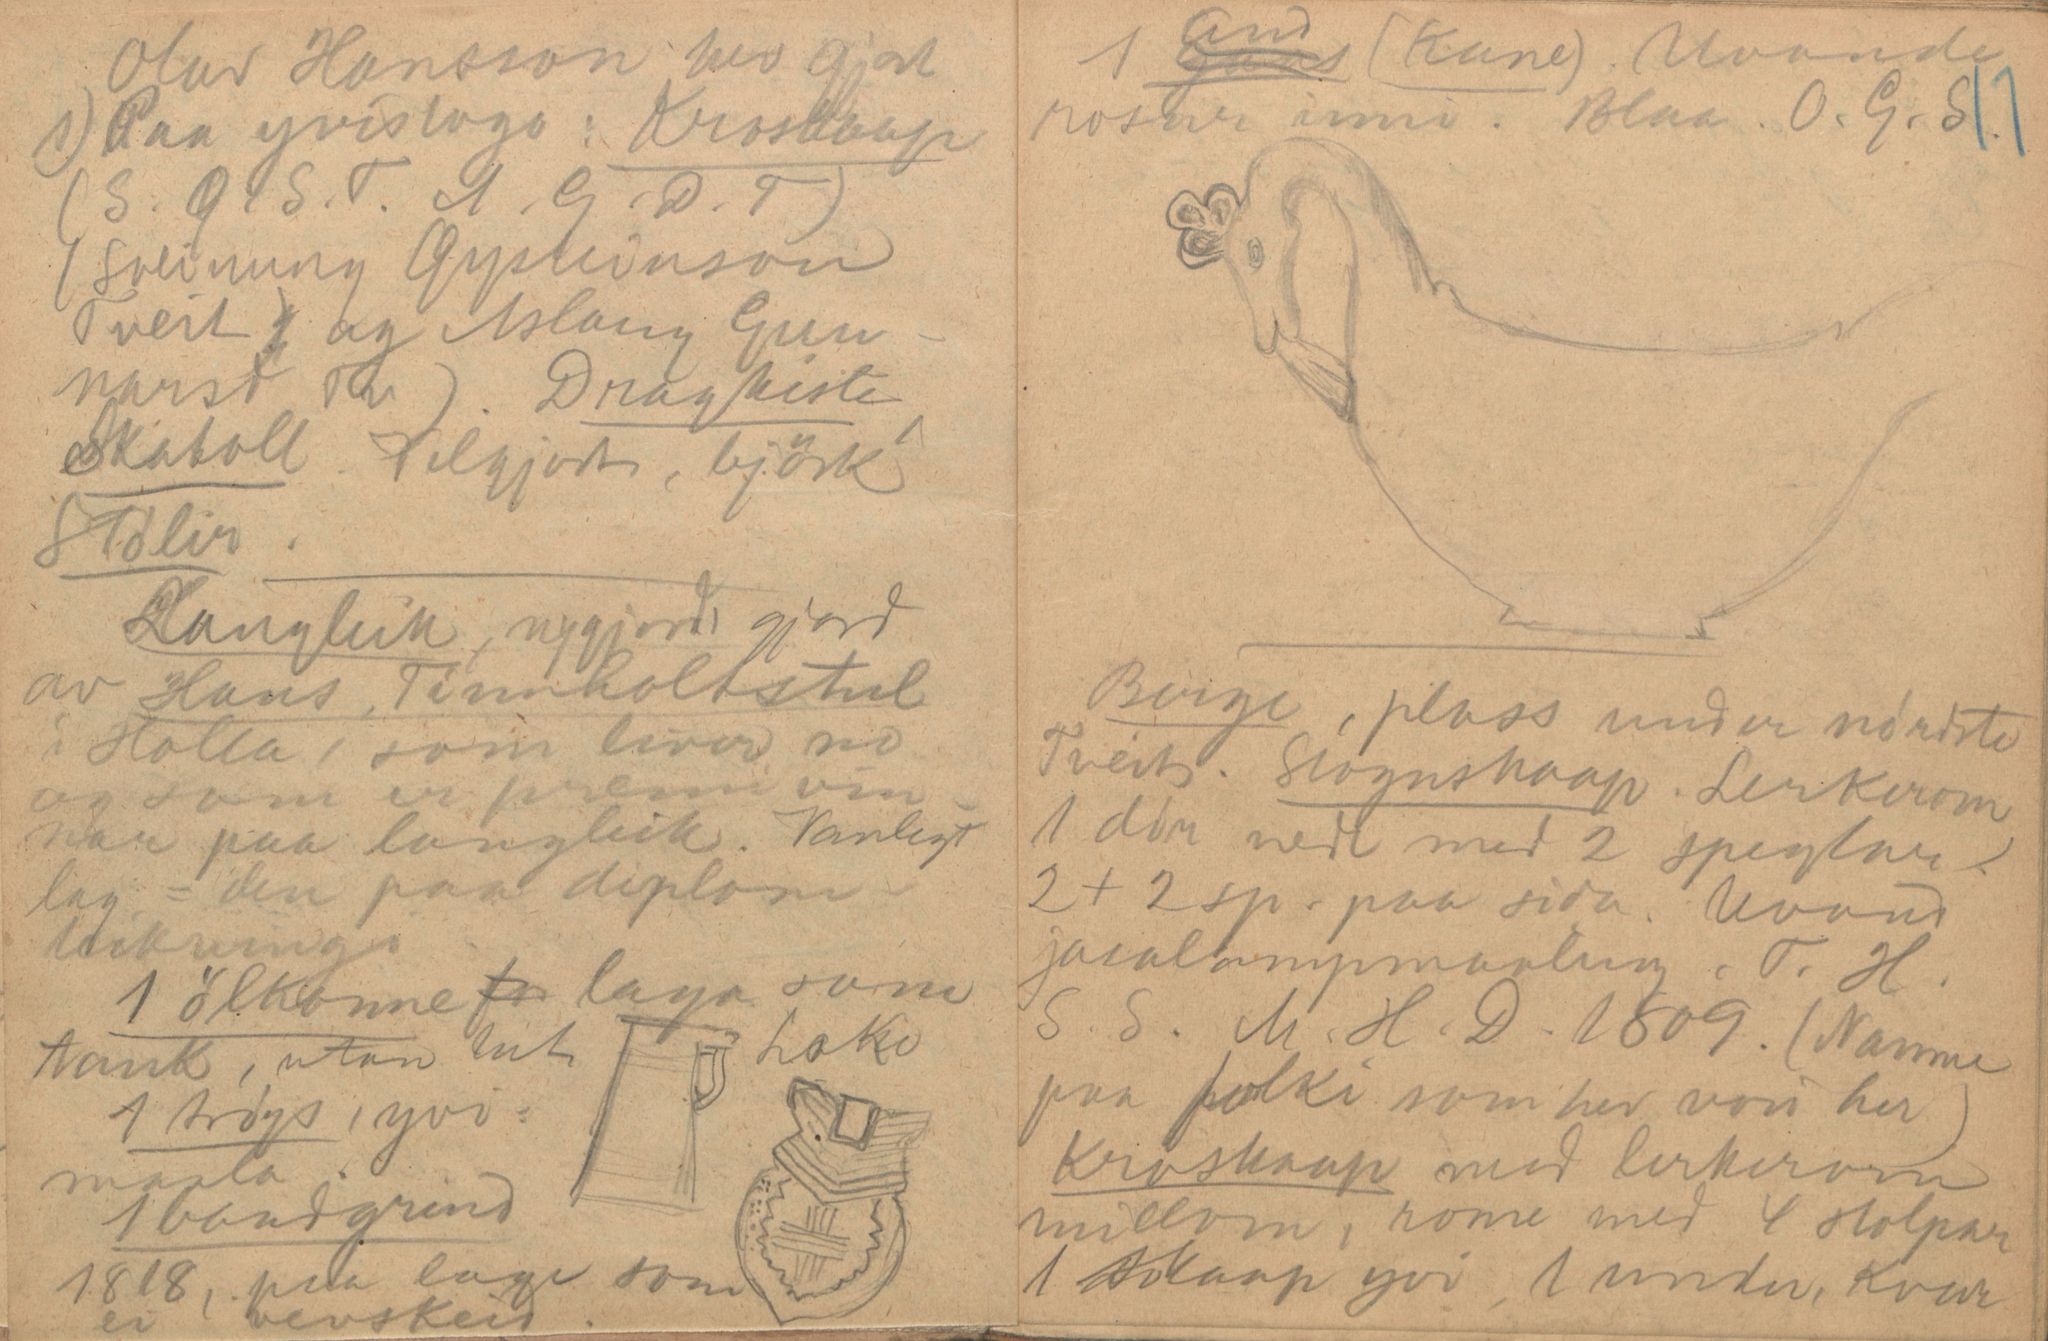 Olav Hansson hev gjort
1) Paa yvistogo: Kroskaap
(S. Ø. S. T. A. G. D. T)
(Sveinung Øysteinson
Tveit og Aslaug Gun-
narsd Tv). Dragkiste
Skatoll. Tilgjort, björk
Stólir.
Langleik, nygjord, gjord
av Hans, Tinnholtstul
i Holla, som liver no
og som er premivin-
nar paa langleik. Vanlegt
lag = den paa diplom-
teikningi
1 ölkanne laga som
tank, utan tut. Loke
1 trógs, yvi-
maala.
1 bandgrind
1818, paa lage som
ei vevskeid.
1 And (Kane). Uvonde
rosur inni. Blaa. O. G. S. 17
Berge, plass under nórdste
Tveit. Stognskaap. Lerkerom
1 dör nede med 2 speglar.
2 + 2 sp. paa sida. Uvond
jacalampmaaling. T. H.
S. S. M. H. D. 1809. (Namne
paa folki som hev vori her)
Kroskaap med lerkerom
millom, rome med 4 stolpar
1 skaap yvi, 1 under, kvar